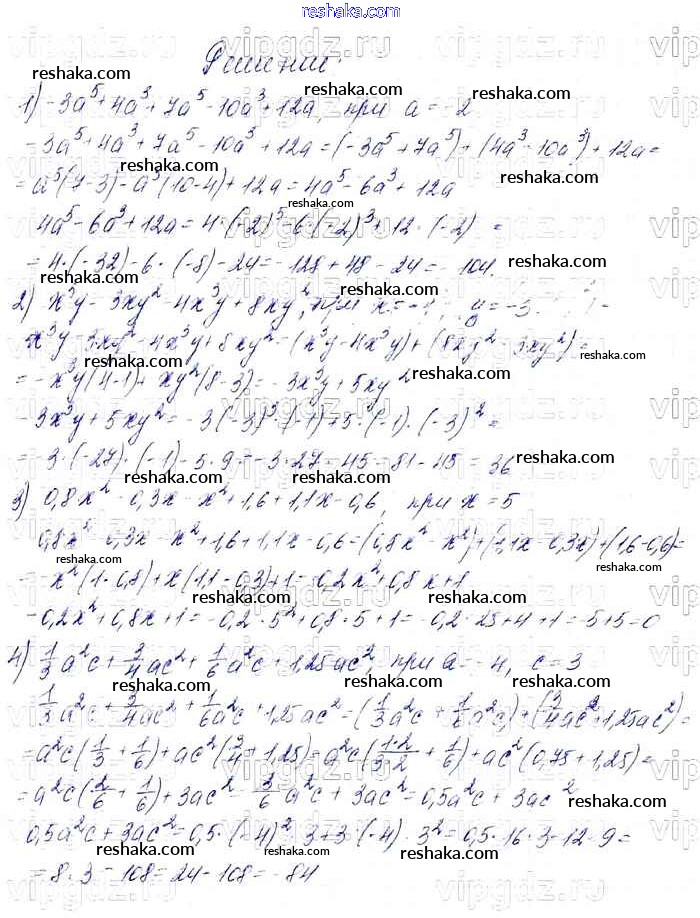 reshaka.com
Решение
1) -3a⁵+4a³+7a⁵-10a³+12a, при a=-2
-3a⁵+4a³+7a⁵-10a³+12a=(-3a⁵+7a⁵)+(4a³-10a³)+12a=
=a⁵(7-3)-a³(10-4)+12a=4a⁵-6a³+12a
4a⁵-6a³+12a=4·(-2)⁵-6·(-2)³+12·(-2)=
=4·(-32)-6·(-8)-24=-128+48-24=-104.
2) x³y-3xy²-4x³y+8xy², при x=-1, y=-3.
x³y-3xy²-4x³y+8xy²=(x³y-4x³y)+(8xy²-3xy²)=
=-x³y(4-1)+xy²(8-3)=-3x³y+5xy²
-3x³y+5xy²=-3·(-3)³·(-1)+5·(-1)·(-3)²=
=-3·(-27)·(-1)-5·9=-3·27-45=81-45=36
3) 0,8x²-0,3x-x²+1,6+1,1x-0,6, при x=5
0,8x²-0,3x-x²+1,6+1,1x-0,6=(0,8x²-x²)+(1,1x-0,3x)+(1,6-0,6)=
=-x²(1-0,8)+x(1,1-0,3)+1=-0,2x²+0,8x+1
-0,2x²+0,8x+1=-0,2·5²+0,8·5+1=-0,2·25+4+1=-5+5=0
4) 1/3a²c+3/4ac²+1/6a²c+1,25ac², при a=-4, c=3
1/3a²c+3/4ac²+1/6a²c+1,25ac²=(1/3a²c+1/6a²c)+(3/4ac²+1,25ac²)=
=a²c(1/3+1/6)+ac²(3/4+1,25)=a²c(1·2/3·2+1/6)+ac²(0,75+1,25)=
=a²c(2/6+1/6)+3ac²=3/6a²c+3ac²=0,5a²c+3ac²
0,5a²c+3ac²=0,5·(-4)²·3+3·(-4)·3²=0,5·16·3-12·9=
=8·3-108=24-108=-84